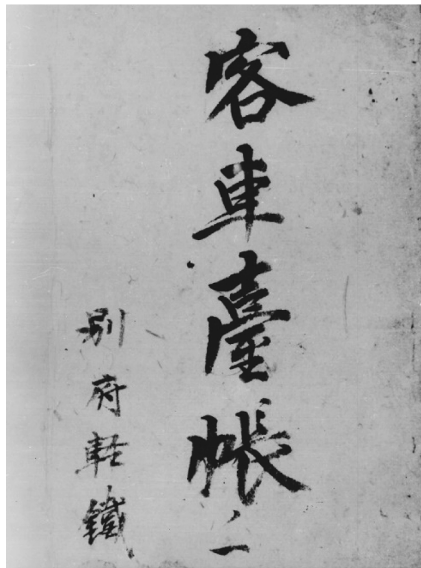 客車臺帳ノ一
別府軽鐵